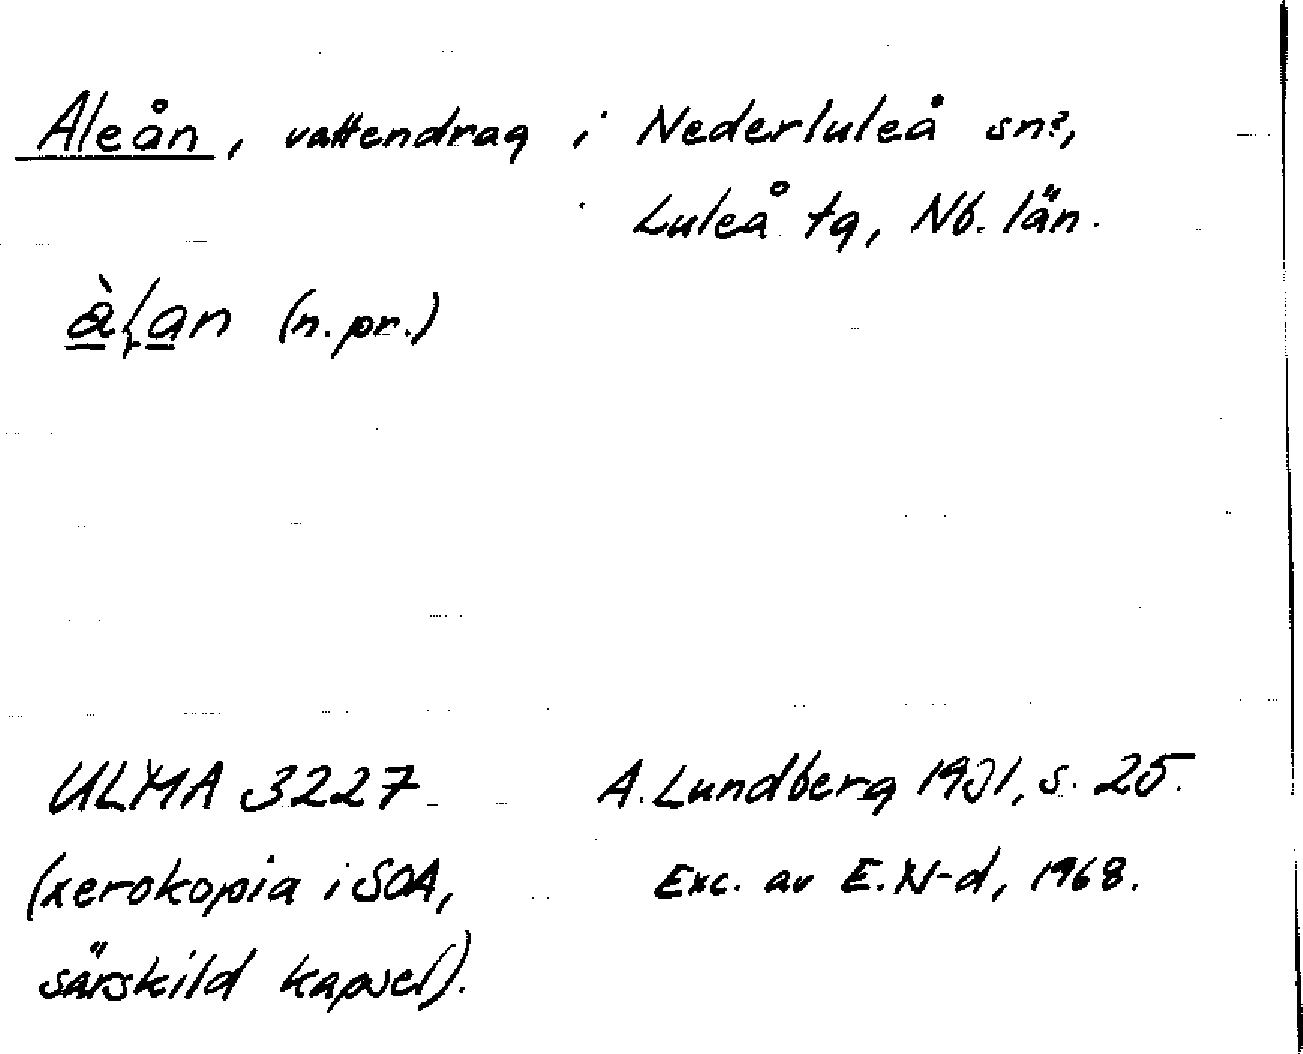 Aleån, vattendrag i Nederluleå sn?,
Luleå tg, Nb. län.
àlan (n.pr.)
ULMA 3227. A. Lundberg 1931, s. 25.
(xerokopia i SOA, Exc. av E. N-d, 1968.
särskild kapsel).